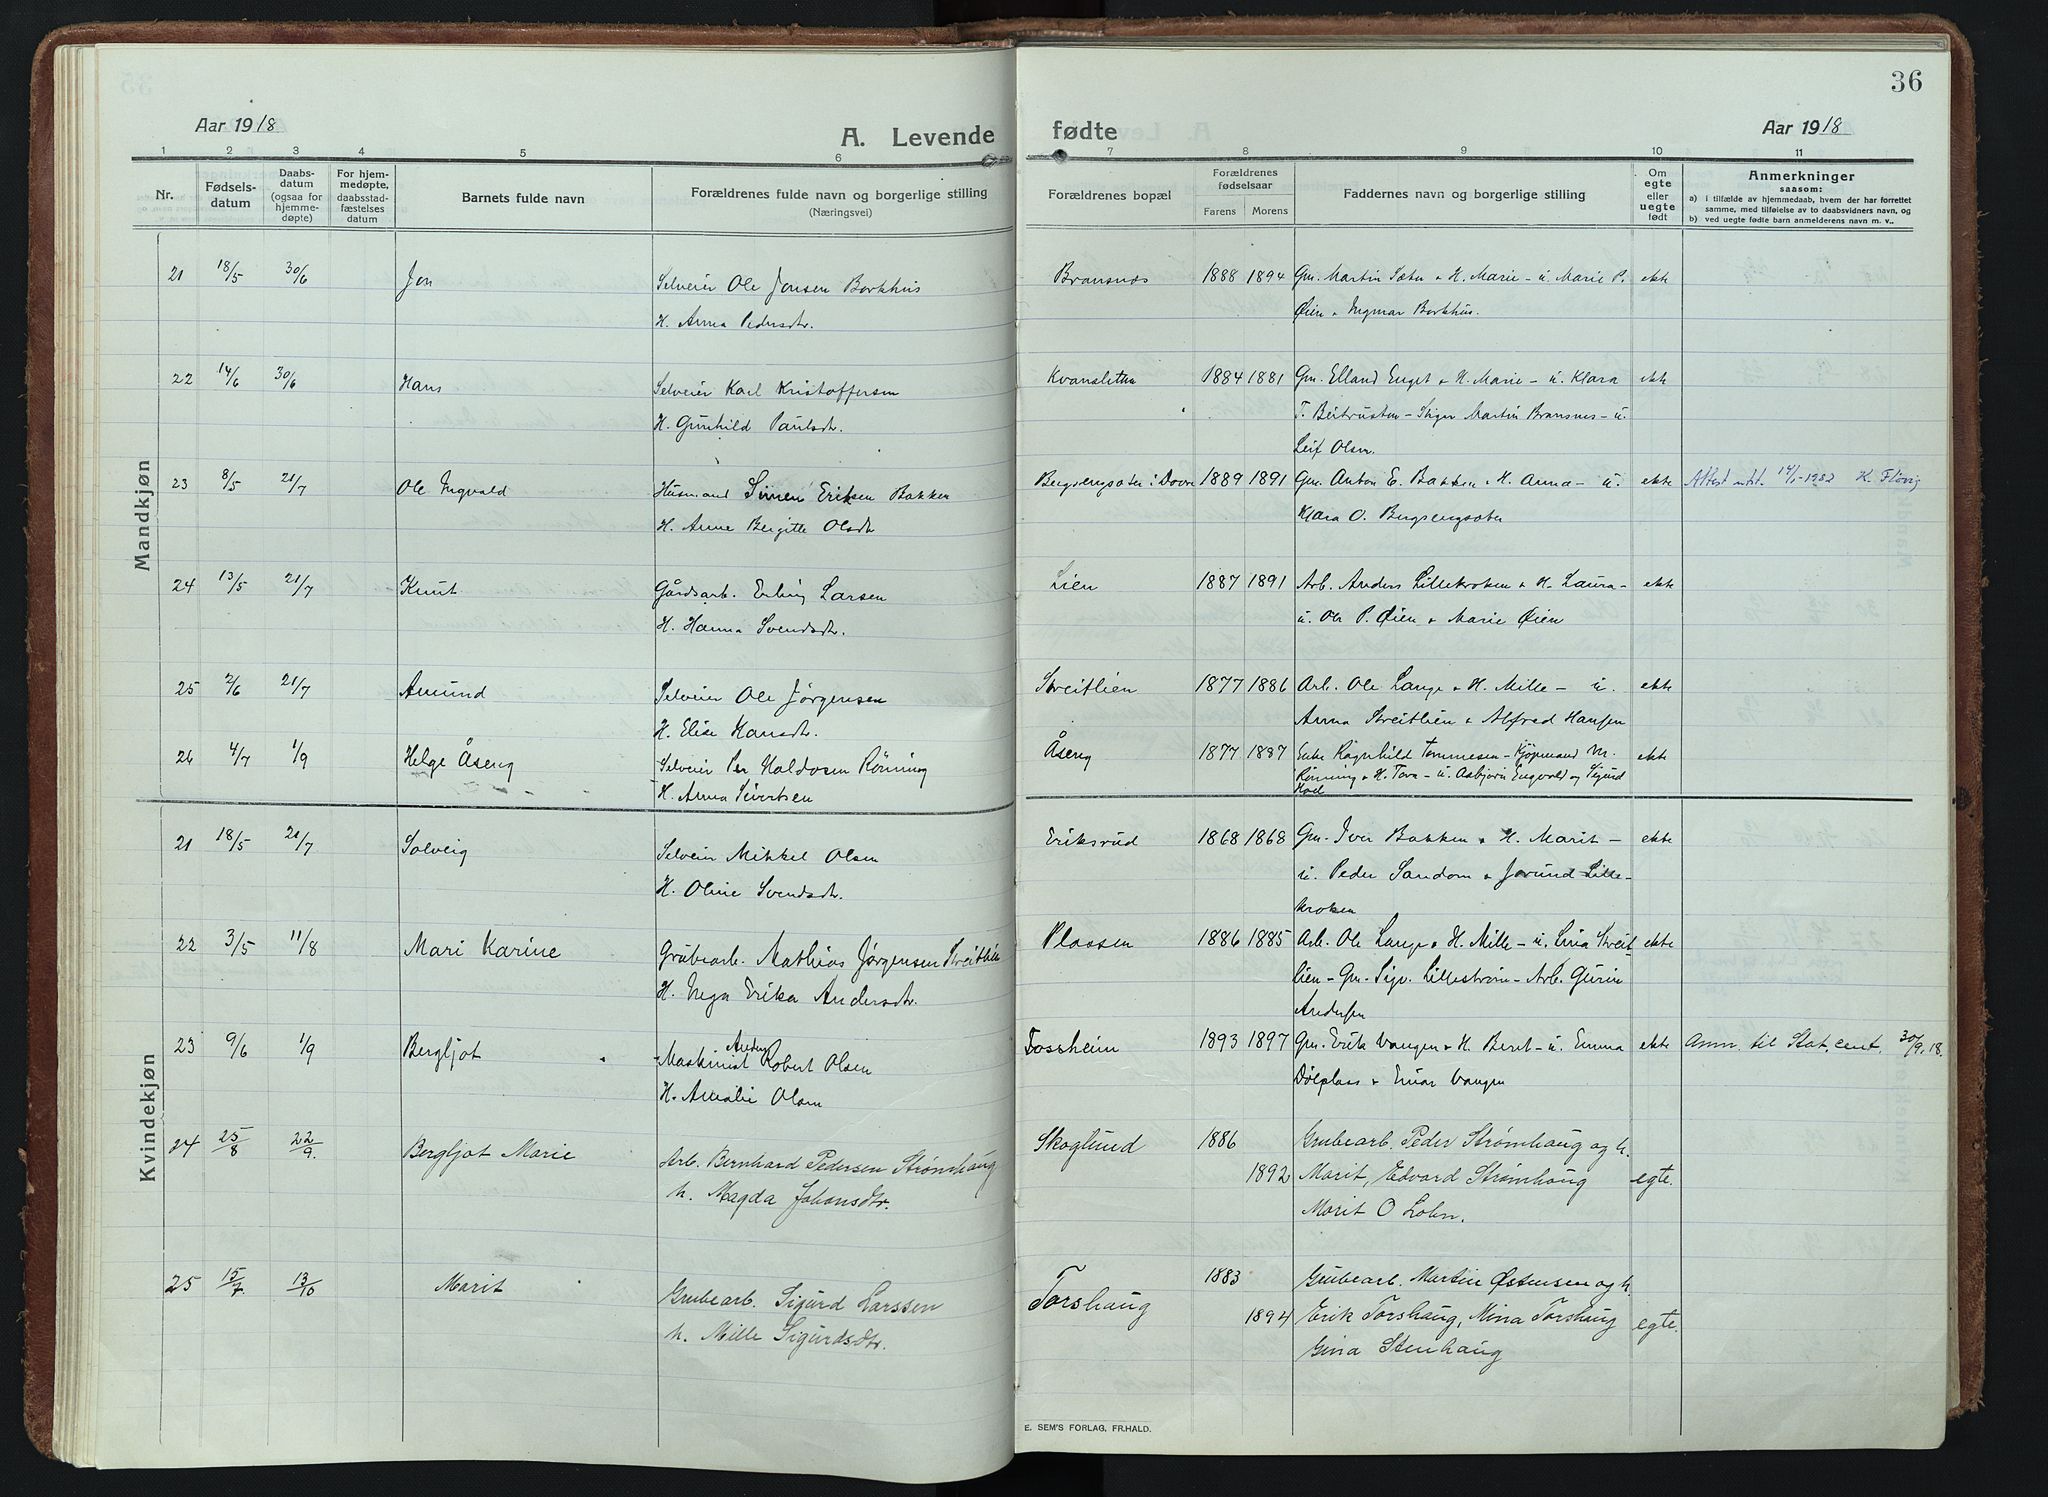 35
36
Aar 1918
A. Levende
fødte
Aar 1918
1 2 3 4 5 6 7 8 9 10 11
Nr.
Fødsels-
datum
Daabs-
datum
(ogsaa for
hjemme-
døpte)
For hjem-
medøpte,
daabsstad-
fæstelses
datum
Barnets fulde navn
Forældrenes fulde navn og borgerlige stilling
(Næringsvei)
Forældrenes bopæl
Forældrenes
fødselsaar
Farens Morens
Faddernes navn og borgerlige stilling
Om
egte
eller
uegte
født
Anmerkninger
saasom:
a) i tilfælde av hjemmedaab, hvem der har forrettet
samme, med tilføielse av to daabsvidners navn, og
b) ved uegte fødte barn anmelderens navn m. v..
Mandkjøn
21 18/5 30/6 Jon Selveier Ole Jonsen Borkhus Bransnes 1888 1894 Gm. Martin Sæter & H. Marie - u. Marie P. ekte
H. Anna Pedersdtr. Øien & Ingmar Borkhus.
22 14/6 30/6 Hans Selveier Karl Kristoffersen Kvanslettea 1884 1881 Gm. Elland Enget & H. Marie - u. Klara ekte
H. Gunhild Paulsdtr. T. Beitrusten - Stiger Martin Bransnes - u.
Leif Olsen.
23 8/5 21/7 Ole Ingvald Husmand Simen Eriksen Bakken Bergsengsæter i Dovre 1889 1891 Gm. Anton E. Bakken & H. Anna - u. ekte Attest utst. 14/1-1982 K. Fløvig
H. Anne Bergitte Olsdtr Klara O. Bergsengsæter
24 13/5 21/7 Knut Gårdsarb. Erling Larsen Lien 1887 1891 Arb. Anders Lillekroken & H. Laura - ekte
H. Hanna Svendsdtr. u. Ole P. Øien & Marie Øien
25 2/6 21/7 Amund Selveier Ole Jørgensen Streitlien 1877 1886 Arb. Ole Lange & H. Mille - u. ekte
H. Elise Hansdtr. Anna Streitlien & Alfred Hansen
26 4/7 1/9 Helge Åseng Selveier Per Haldosen Rønning Åseng 1877 1887 Enke Ragnhild Tommesen - Kjøpmand M. ekte
H. Anna Sivertsen Rønning & H. Tora - u. Asbjørn Engvold og Sigurd
Hoel
Kvindekjøn
21 18/5 21/7 Solveig Selveier Mikkel Olsen Eriksrud 1868 1868 Gm. Iver Bakken & H. Marit - ekte
H. Oline Svendsdtr. u. Peder Sandom & Jørund Lille-
kroken
22 3/5 11/8 Mari Karine Grubearb. Mathias Jørgensen Streitlien Plassen 1886 1885 Arb. Ole Lange & H. Mille - u. Lina Streit ekte
H. Inga Erika Andersdtr. lien - Gm. Sigv. Lillestrøm - Arb. Gurine
Andersen
23 9/6 1/9 Bergljot Maskinist Anders Robert Olsen Tossheim 1893 1897 Gm. Erik Vangen & H. Beret - u. Emma ekte Anm. til Stat. cent. 30/9.18.
H. Amalie Olsen Dølplass & Einar Vangen
24 25/8 22/9. Bergljot Marie Arb. Bernhard Pedersen Strømhaug Skoglund 1886 Grubearb. Peder Strømhaug og h.
h. Magda Johansdtr. 1892 Marit, Edvard Strømhaug egte.
Marit O Lohn.
25 15/7 13/10 Marit Grubearb. Sigurd Larssen Torshaug 1883 Grubearb. Martin Østensen og h.
h. Mille Sigurdsdtr. 1894 Erik Torshaug, Mina Torshaug egte.
Gina Stenhaug
E. SEM'S FORLAG, FR.HALD.